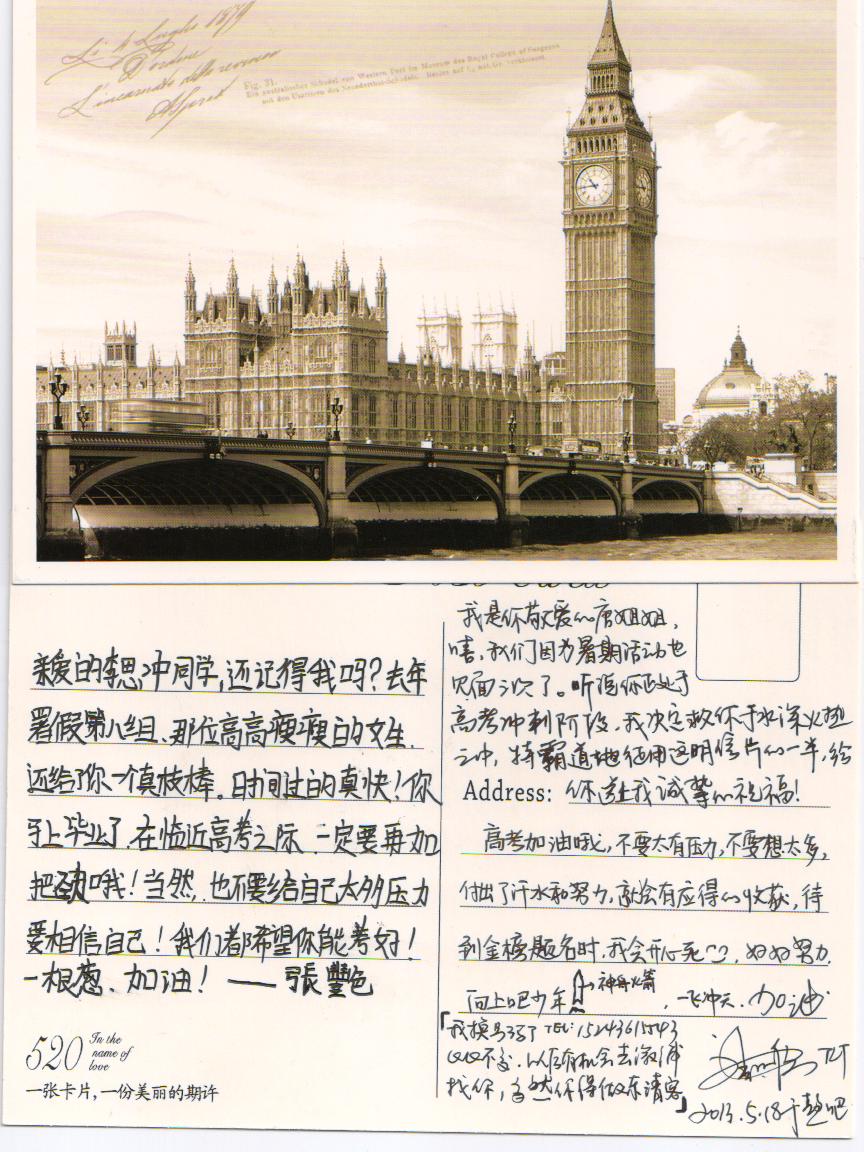 Fig. 31.
亲爱的李思冲同学,还记得我吗?去年
署假第八组、那位高高瘦瘦的女生.
还给了你一个真枝棒。时间过的真快!你
马上毕业了,在临近高考之际,一定要再加
把劲哦!当然,也不要给自己太多压力
要相信自己!我们都希望你能考好!
一根葱、加油! —— 張豐色
520 In the
name of
love
一张卡片,一份美丽的期许
我是你敬爱的唐姐姐,
嘻,我们因为暑期活动也
见面三次了。听说你正处于
高考冲刺阶段,我决定救你于水深火热
之中,特霸道地征用这明信片的一半,给
Address: 你送上我诚挚的祝福!
高考加油哦,不要太有压力,不要想太多,
付出了汗水和努力,就会有应得的收获,待
到金榜题名时,我会开心死~,好好努力,
向上吧少年 → 神舟火箭, 一飞冲天.加油
「我换号码了 TEL: 15243611543
以后有机会去
找你,当然你得做东请客」
2013.5.18于